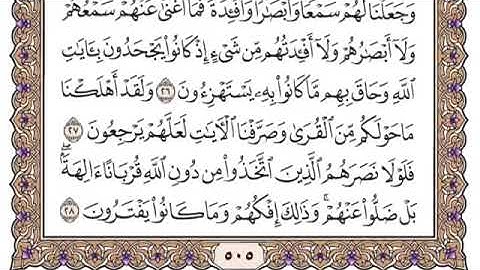 وَجَعَلْنَا لَهُمْ سَمْعًا وَأَبْصَٰرًا وَأَفْـِٔدَةً فَمَآ أَغْنَىٰ عَنْهُمْ سَمْعُهُمْ
وَلَآ أَبْصَٰرُهُمْ وَلَآ أَفْـِٔدَتُهُم مِّن شَىْءٍ إِذْ كَانُوا۟ يَجْحَدُونَ بِـَٔايَٰتِ
ٱللَّهِ وَحَاقَ بِهِم مَّا كَانُوا۟ بِهِۦ يَسْتَهْزِءُونَ ٢٦ وَلَقَدْ أَهْلَكْنَا
مَا حَوْلَكُم مِّنَ ٱلْقُرَىٰ وَصَرَّفْنَا ٱلْـَٔايَٰتِ لَعَلَّهُمْ يَرْجِعُونَ ٢٧
فَلَوْلَا نَصَرَهُمُ ٱلَّذِينَ ٱتَّخَذُوا۟ مِن دُونِ ٱللَّهِ قُرْبَانًا ءَالِهَةًۢ ۖ
بَلْ ضَلُّوا۟ عَنْهُمْ ۚ وَذَٰلِكَ إِفْكُهُمْ وَمَا كَانُوا۟ يَفْتَرُونَ ٢٨
٥٠٥